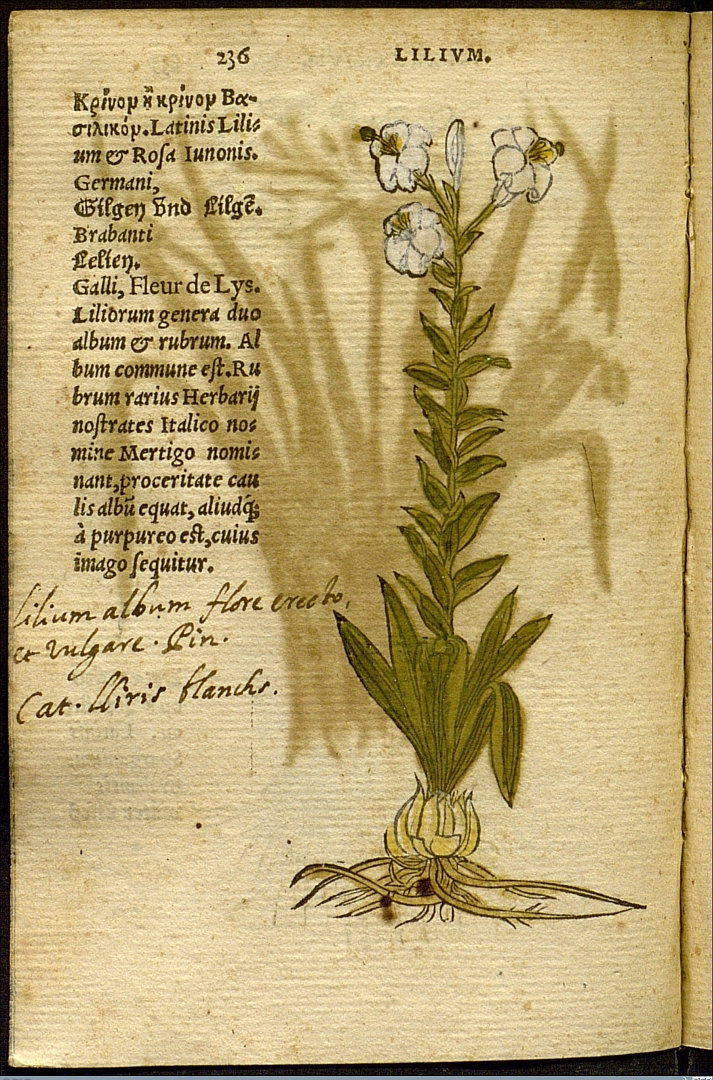 236 LILIVM.
Κρίνομ ἢ κρίνομ Βα-
σιλικόμ. Latinis Lili-
um & Rosa Iunonis.
Germani,
Gilgen vnd Lilgē.
Brabanti
Lelien.
Galli, Fleur de Lys.
Liliorum genera duo
album & rubrum. Al
bum commune est. Ru
brum rarius Herbarij
nostrates Italico no-
mine Mertigo nomi-
nant, proceritate cau
lis albū equat, aliudq́;
à purpureo est, cuius
imago sequitur.
Lilium album flore erecto,
et vulgare. Pin.
Cat. lliris blanchs.